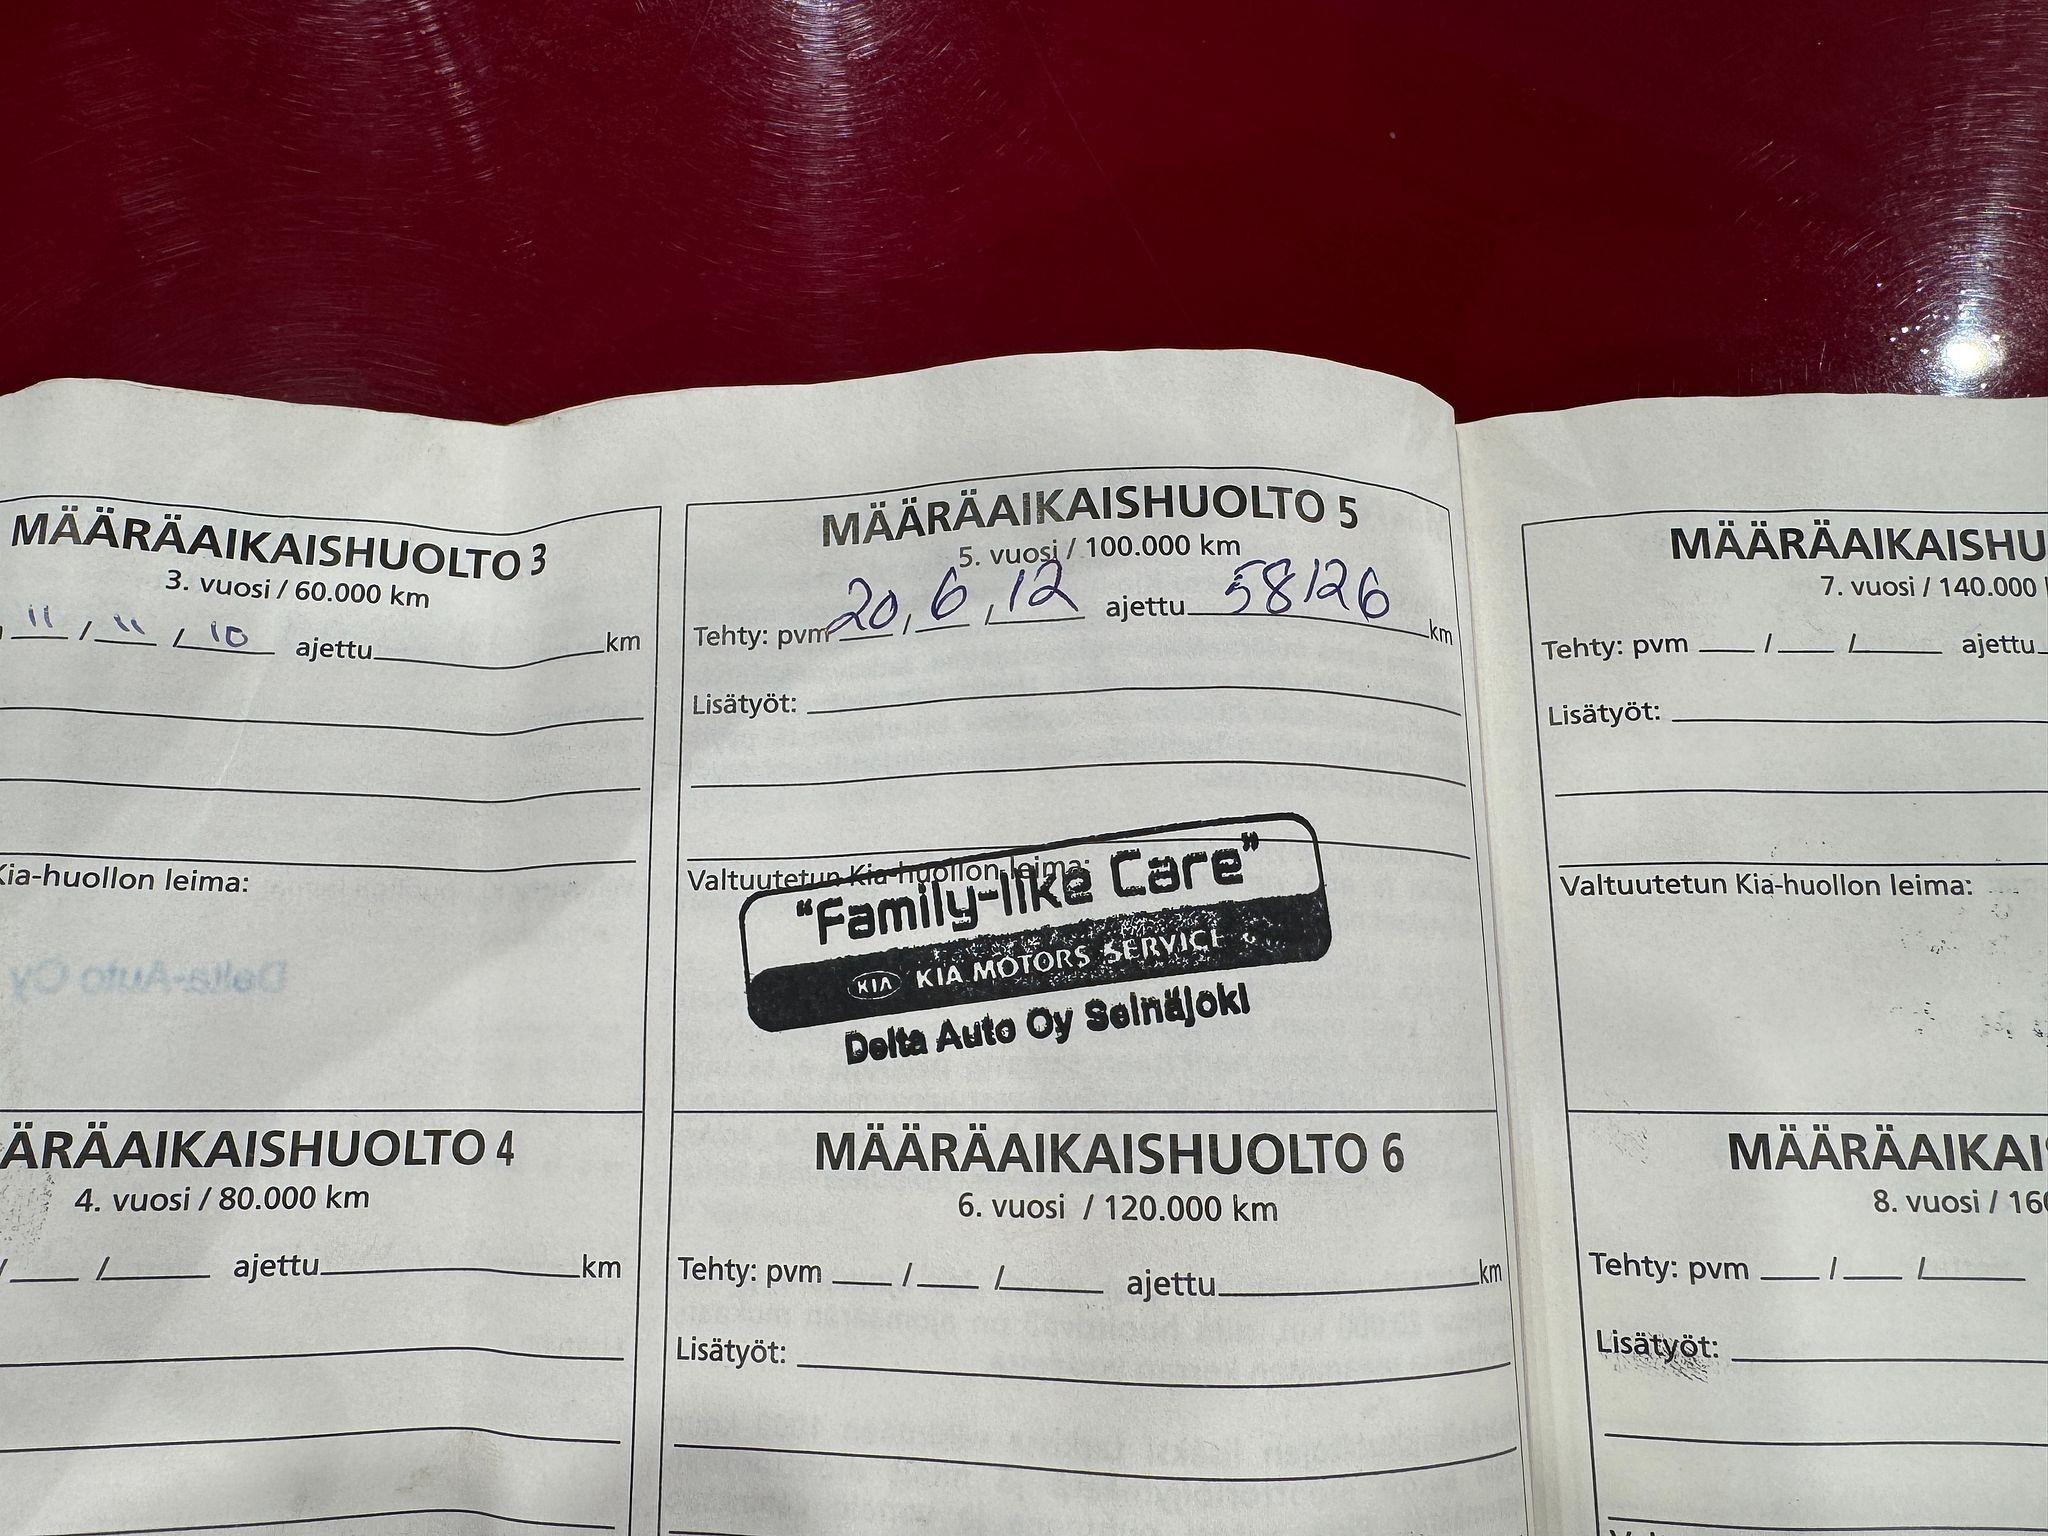 MÄÄRÄAIKAISHUOLTO 3
3. vuosi / 60.000 km
11 / 11 / 10 ajettu km
Kia-huollon leima:
Delta-Auto Oy
ÄRÄAIKAISHUOLTO 4
4. vuosi / 80.000 km
/ / ajettu km
MÄÄRÄAIKAISHUOLTO 5
5. vuosi / 100.000 km
Tehty: pvm 20 / 6 / 12 ajettu 58126 km
Lisätyöt:
Valtuutetun Kia-huollon leima:
"Family-like Care"
KIA KIA MOTORS SERVICE
Delta Auto Oy Seinäjoki
MÄÄRÄAIKAISHUOLTO 6
6. vuosi / 120.000 km
Tehty: pvm / / ajettu km
Lisätyöt:
MÄÄRÄAIKAISHU
7. vuosi / 140.000
Tehty: pvm / / ajettu
Lisätyöt:
Valtuutetun Kia-huollon leima:
MÄÄRÄAIKAI
8. vuosi / 160
Tehty: pvm / /
Lisätyöt: